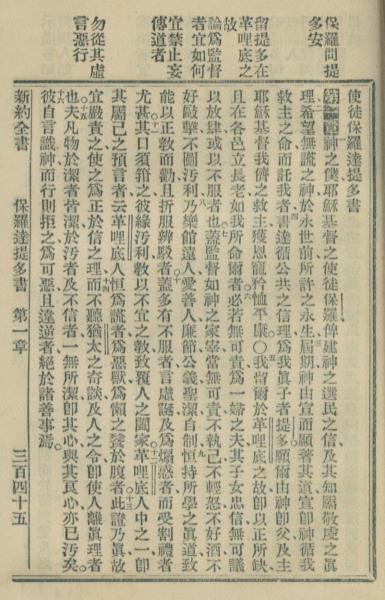 保羅問提
多安
留提多在
革哩底之
故
論爲監督
者宜如何
宜禁止妄
傳道者
勿從其虛
言惡行
使徒保羅達提多書
第一章 神之僕耶穌基督之使徒保羅俾建神之選民之信及其知屬敬虔之眞
理希望無謊之神於永世前所許之永生屆期神由宣而顯著其道宣即神循我
救主之命而託我者書達循公共之信理爲我眞子者提多願爾由神即父及主
耶穌基督我儕之救主獲恩寵矜恤平康○我留爾於革哩底之故即以正所缺
且在各邑立長老如我所命爾者必若無可責爲一婦之夫其子女忠信無可議
以放肆或以不服者也蓋監督如神之家宰當無可責不執己不輕怒不好酒不
好毆擊不圖污利乃樂館遠人愛善人廉節公義聖潔自制恒持所學之眞道致
能以正教而勸且折服辯駁者蓋多有不服者言虛誕及爲煽惑者而受割禮者
尤甚其口須箝之彼緣污利教以不宜之教致覆人之闔家革哩底人中之一即
其屬己之預言者云革哩底人恒爲謊者爲惡獸爲懶之饕於腹者此證乃眞故
宜嚴責之使之爲正於信之理而不聽猶太之奇談及人之令即使人離眞理者
也夫凡物於潔者皆潔於污者及不信者一無所潔即其心與其良心亦已污矣
彼自言識神而行則拒之爲可惡且違逆者絕於諸善事焉
新約全書 保羅達提多書 第一章 三百四十五